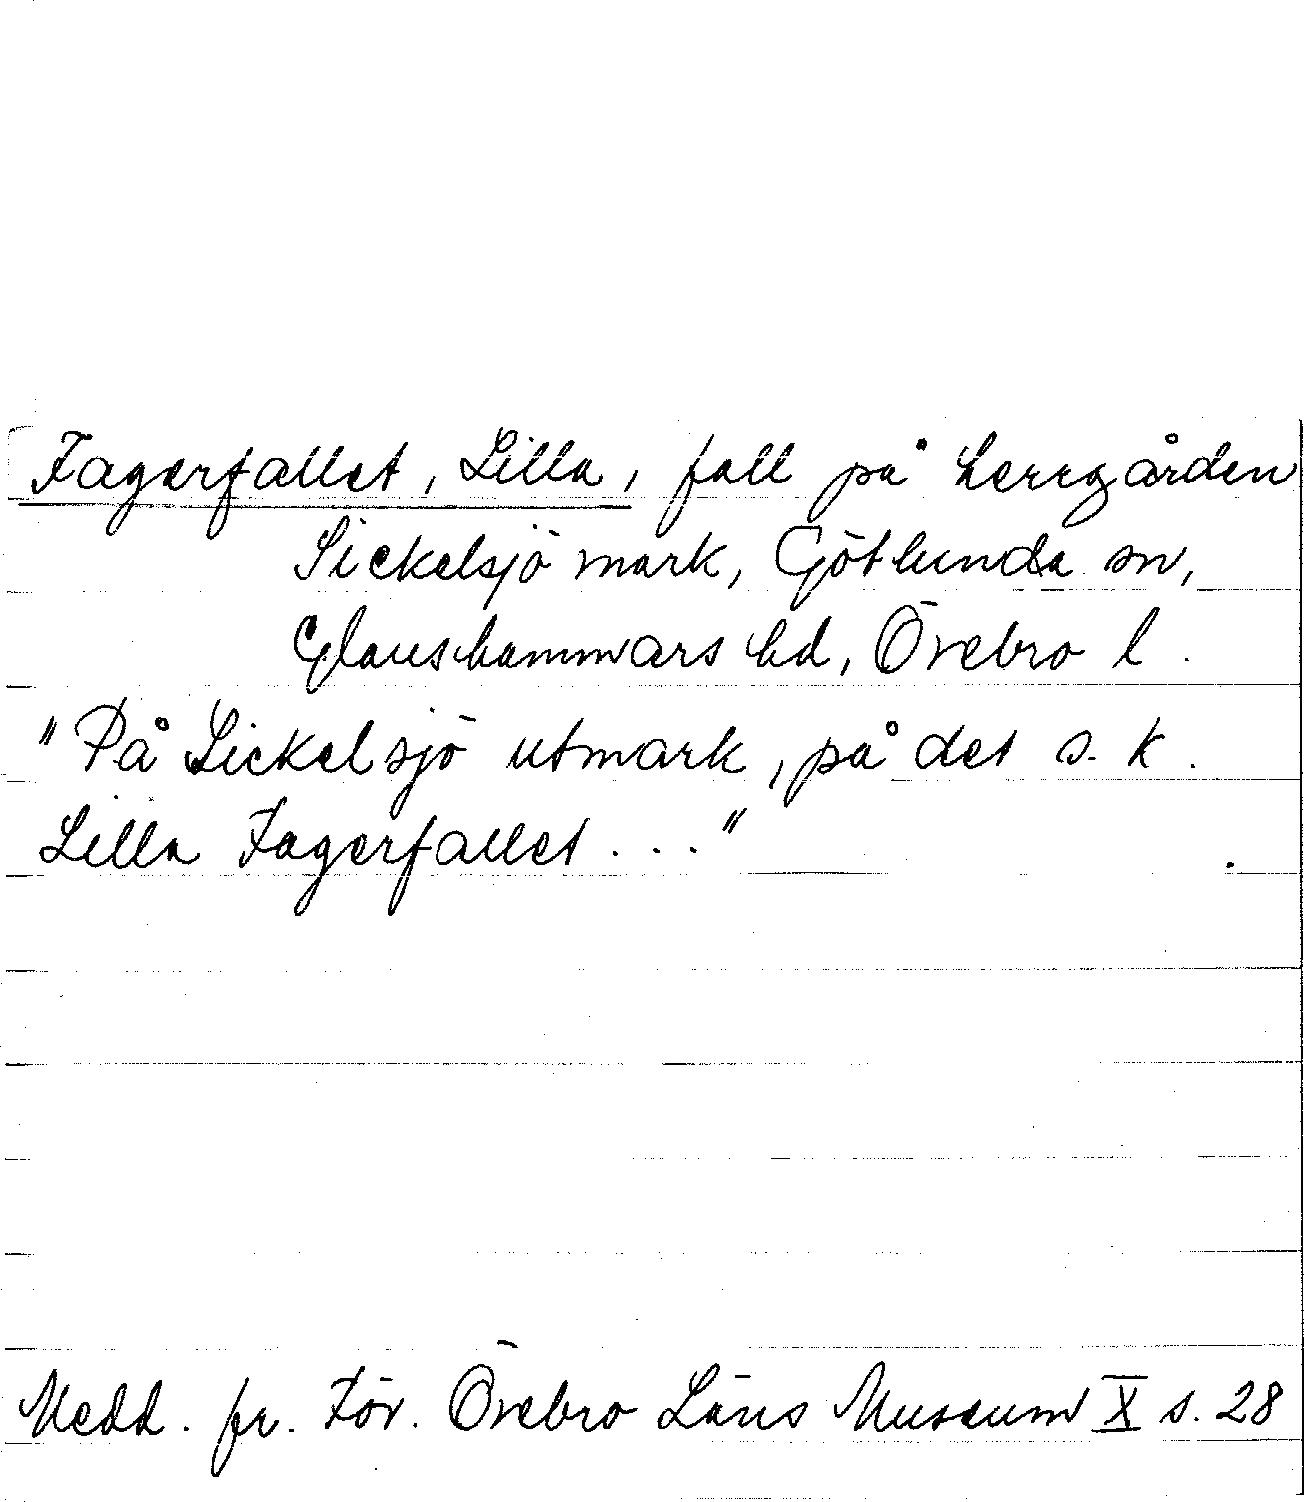 Fagerfallet, Lilla, fall på herrgården
Sickelsjö mark, Götlunda sn,
Glanshammars hd, Örebro l.
"På Sickelsjö utmark, på det s. k.
Lilla Fagerfallet . . ."
Medd. fr. För. Örebro Läns Museum X s. 28